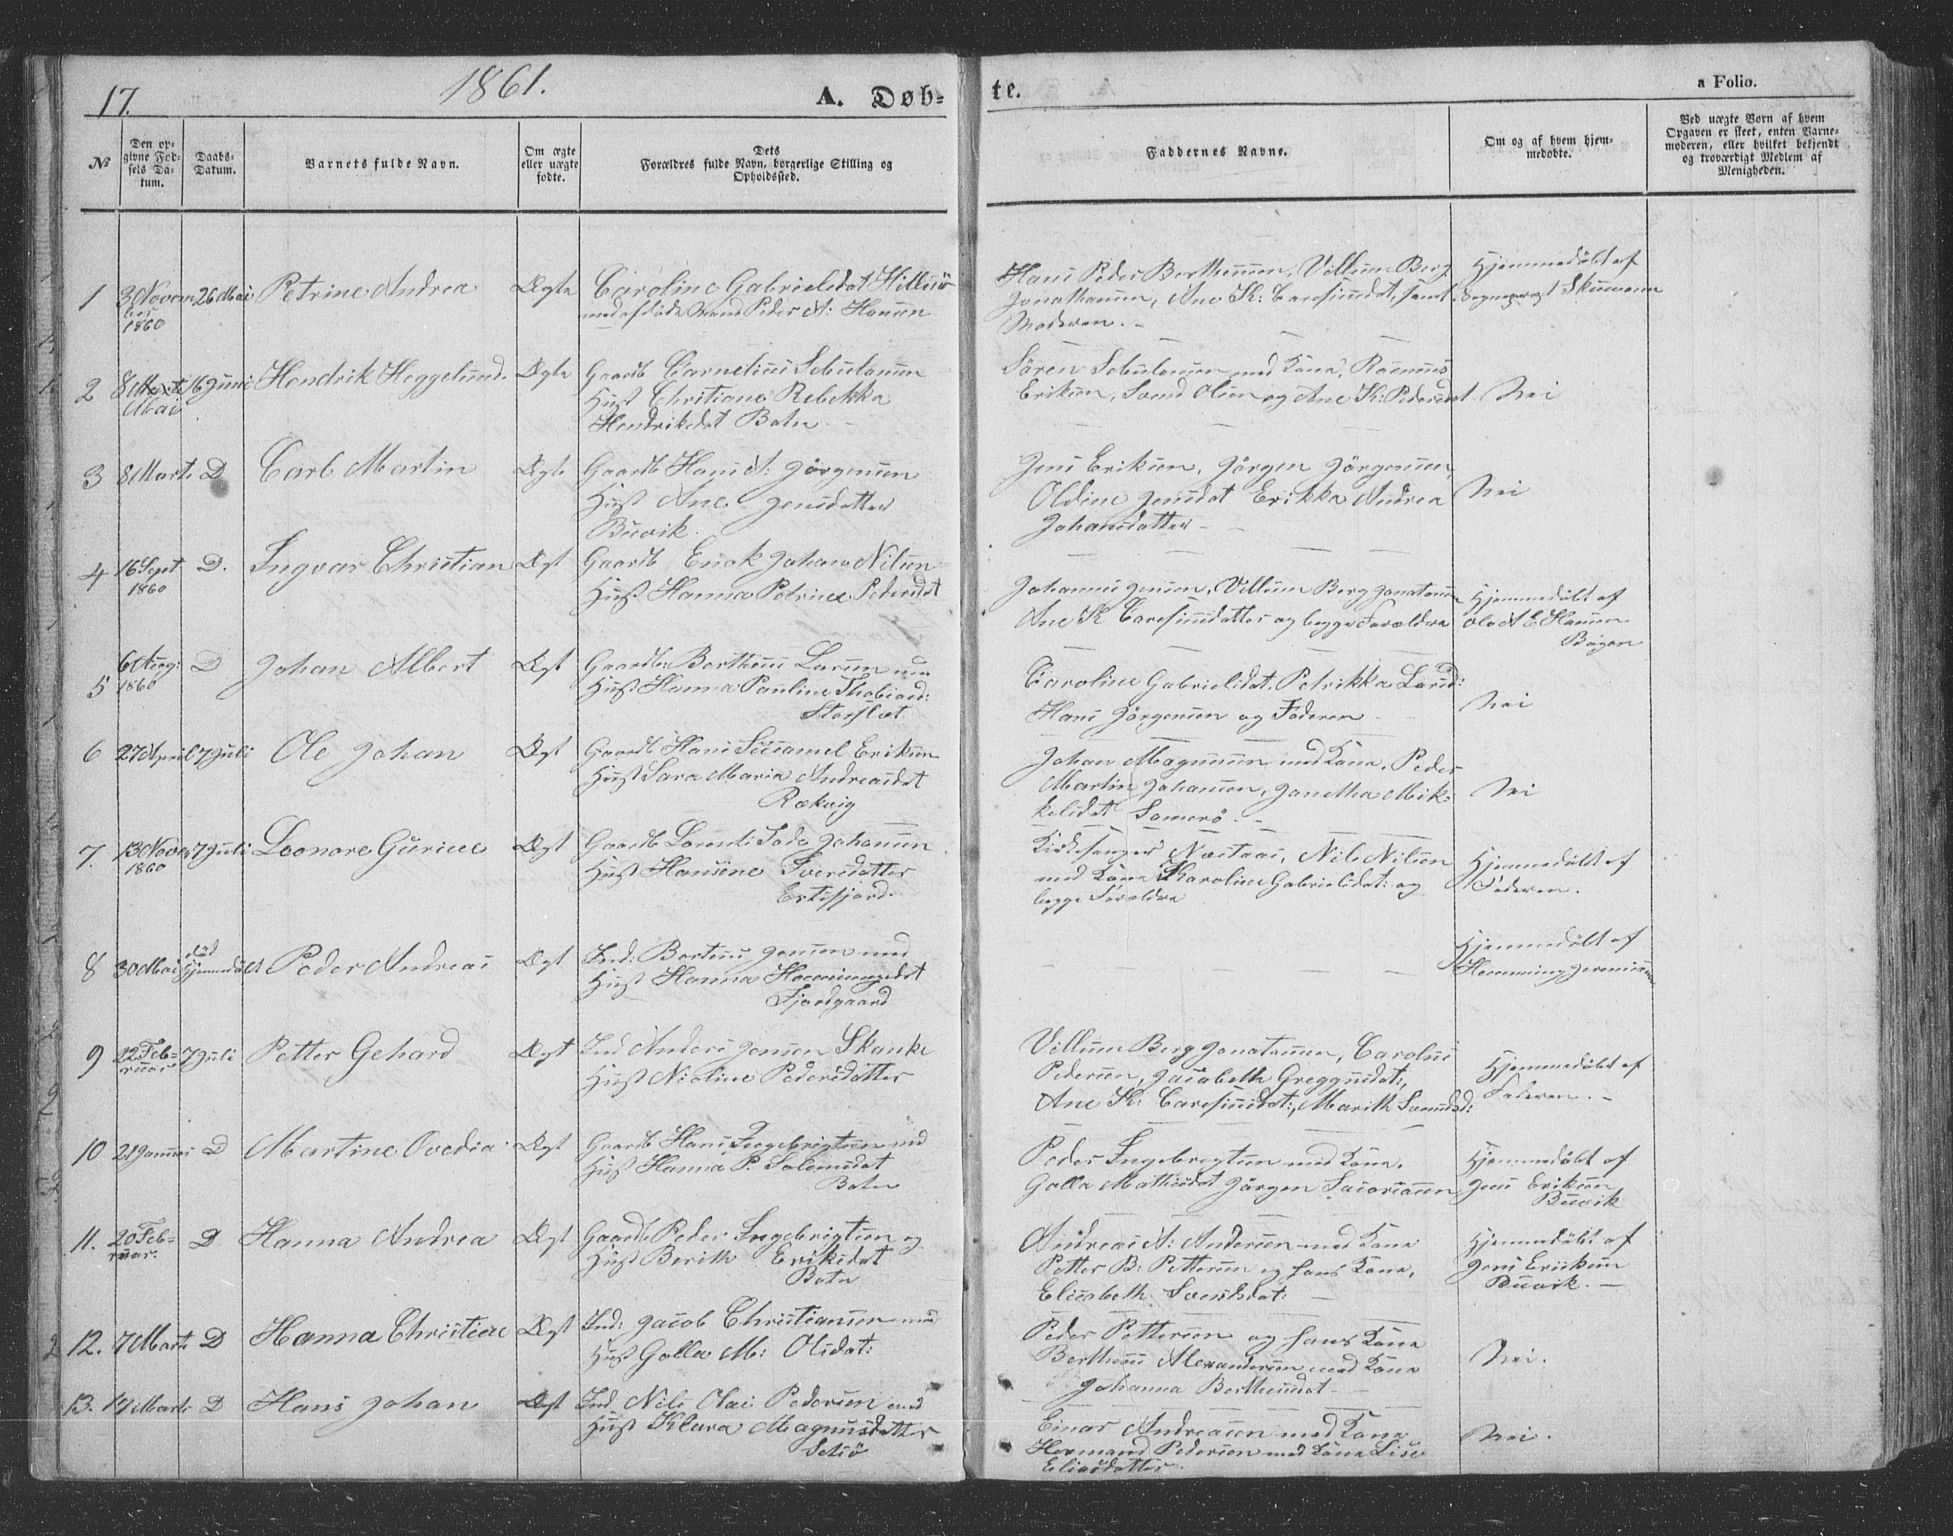 17.
1861.
A. Døb-
te.
a Folio.
No
Den op-
givne Fød-
sels Da-
tum.
Daabs-
Datum.
Barnets fulde Navn.
Om ægte
eller uægte
fødte.
Dets
Forældres fulde Navn, borgerlige Stilling og
Opholdssted.
Faddernes Navne.
Om og af hvem hjem-
medøbte.
Ved uægte Børn af hvem
Opgaven er skeet, enten Barne-
moderen, eller hvilket bekjendt
og troværdigt Medlem af
Menigheden.
1
3 Novem
ber
1860
26 Mai
Petrine Andrea
Ægte
Caroline Gabrielsdat
med afdøde Mand Peder A: Hansen
Hans Peder Berthensen, Villum Berg
Jonathansen, Ane K: samt
Moderen. -
Hjemmedøbt af
2
8
Mai
16 Juni
Hendrik Heggelund.
Ægte
Gaardb Cornelius Sebulonsen
Hust Christiane Rebekka
Hendriksdat Botn
Søren Sebulonsen med Kone, Rasmus
Eriksen, Olsen og Ane K: Pedersdat
Nei
3
8 Marts
D
Carl Martin
Ægte
Gaardb Hans A: Jørgensen
Hust Ane Jensdatter
Buvik.
Jens Eriksen, Jørgen Jørgensen,
Oldine Jensdat Erikka Andrea
Johansdatter -
Nei
4
16 Sept
1860
D.
Ingvar Christian
Ægt
Gaardb Enok Johan Nilsen
Hust Hanna Petrine Pedersdat
Johannes Jensen, Villum Berg Jonatansen
Ane K og begge Forældre
Hjemmedøbt af
Ole A E Hansen
Bogen
5
6 Aug:
1860
D
Johan Albert
Ægt
Gaardb: Bertheus Larsen
Hust Hanna Pauline Thobiasd:
Storslæt
Caroline Gabrielsdat, Petrikka Larsd:
Hans Jørgensen og Faderen
Nei
6
27 April
7 Juli
Ole Johan
Ægt
Gaardb Hans Eriksen
Hust Sara Maria Andreasdat
Rækvig
Johan Magnusen med Kone, Peder
Martin Johansen, Janetha Mik-
kelsdat
Nei
7.
13 Novem
1860
7 Juli
Leonore Gurine
Ægt
Gaardb Lorents Johansen
Hust Hansine Iversdatter
Kirkesanger Næstaas, Nils Nilsen
med Kone Karoline Gabrielsdat: og
begge Forældre
Hjemmedøbt af
Faderen.
8
30 Mai
død
hjemmedøbt
Peder Andreas
Ægt
Ind: Jensen med
Hust Hanna Hemmingsdat
Fjordgaard
Hjemmedøbt af
Hemming Jeremiassen
9
22 Feb-
ruar
7 Juli
Petter Gehard
Ægt
Ind Anders Jensen Skanke
Hust Nicoline Pedersdatter
Villum Berg Jonatansen, Carolus
Pedersen, Greggusdat:,
Ane K: Marith
Hjemmedøbt af
Faderen. -
10
21 Januar
D
Martine Ovedia
Ægt
Gaardb Hans Ingebrigtsen med
Hust Hanna P.
Botn
Peder Ingebrigtsen med Kone,
Golla Mathisdat Jørgen
Hjemmedøbt af
Jens Eriksen
Buvik
11.
20 Feb-
ruar.
D
Hanna Andrea
Ægt
Gaardb Peder Ingebrigtsen og
Hust Berith Eriksdat
Botn
Andreas A: Andersen med Kone
Petter B: Pettersen og hans Kone,
Elisabeth
Hjemmedøbt af
Jens Eriksen
Buvik. -
12.
7 Marts
D
Hanna Christine
Ægt
Ind: Jacob Christiansen med
Hust Golla M: Olsdat:
Peder Pettersen og hans Kone
Bertheus Alexandersen med Kone
Johanna Bertheusdat -
Nei.
13.
17 Marts
D
Hans Johan
Ægt
Ind Nils Olai Pedersen med
Hust Klara Magnusdatter
Einar Andreasen med Kone
Hermand Pedersen med Kone Lise
Eliasdatter.
Nei.